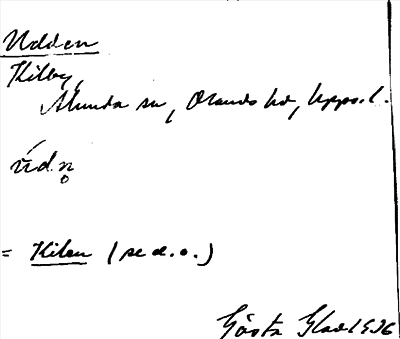 Udden
Kilby,
Alunda sn, Olands hd, Upps. l.
= Kilen (se d. o.)
Gösta Glad 1936